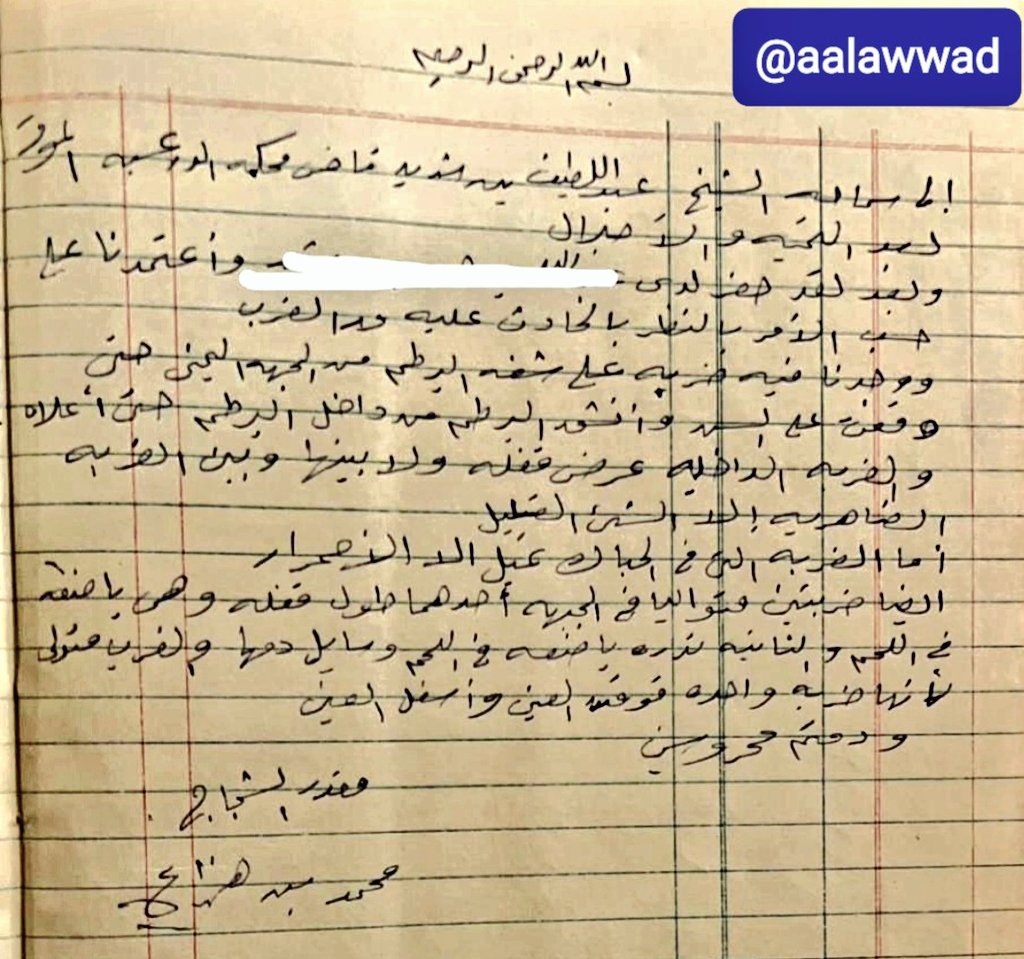 @aalawwad
بسم الله الرحمن الرحيم
الى سماحه الشيخ عبداللطيف بن شديد قاضي محكمه الموقر
بعد التحيه والاجلال
وبعد لقد حضر لدى وأعتمدنا على
حسب الأمر بالنظر بالحادث عليه من الضرب
ووجدنا فيه ضربه على شفه البرطم من الجهه اليمنى حتى
وقفت على السن وأنشق البرطم من داخل البرطم حتى أعلاه
والضربه الداخليه عرض قفله ولا بينها وبين الضربه
الضاهريه إلا الشئ القليل
أما الضربه التي في الحباك الا الأحمرار
ايضا ضربتين متواليا في الجبهه أحدهما طول قفله وهي باضعه
في اللحم والثانيه باضعه في اللحم وسايل دمها والضرب متولي
كأنها ضربة واحده فوق العين وأسفل العين
ودمتم محروسين
مقدر الشجاج
محمد بن هداج